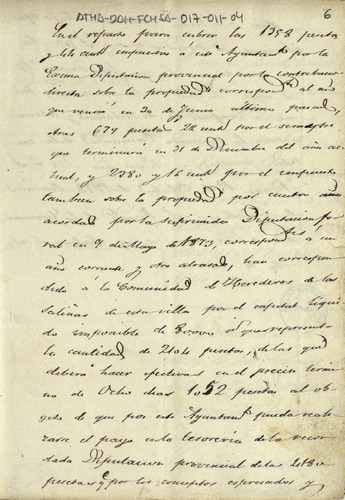 ATHA-DAH-FCHSA-017-011-04
6
En el reparto para cubrir las 1358 pesetas
y 66 cent impuestas á este Ayuntamt por la
Excma Diputacion provincial por la contribucion
directa sobre la propiedad correspond al año
que venció en 30 de Junio ultimo pasado,
otras 674 pesetas 22 cent por el semestre
que terminará en 31 de Diciembre del año ac-
tual, y 2280 y 16 cent por el impuesto
tambien sobre la propiedad por cuatro años
acordado por la suprimida Diputacion fo-
ral en 7 de Mayo de 1873, correspondtes á un
año corriente y otro atrasado, han correspon-
dido á la Comunidad de Herederos de las
salinas de esta villa por el capital liqui-
do imponible de 80.000 que representa
la cantidad de 2104 pesetas, de las que
deberá hacer efectivas en el preciso termi-
no de Ocho dias 1052 pesetas al ob-
geto de que por este Ayuntamt pueda reali-
zarse el pago en la tesoreria de la recor-
dada Diputacion provincial de las 2180
pesetas y por los conceptos espresados y